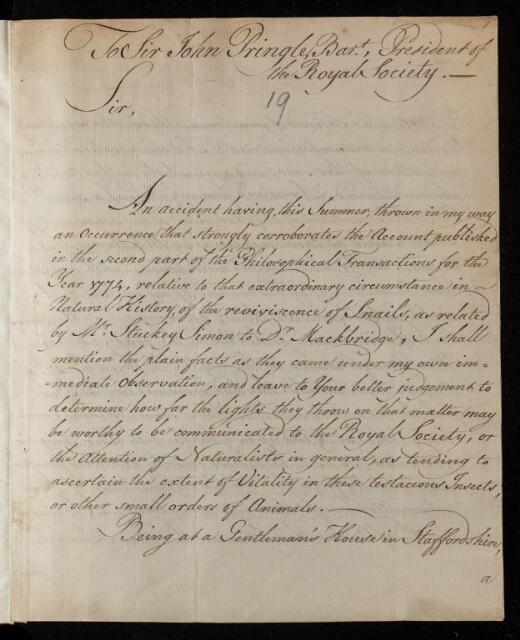 1
To Sir John Pringle, Bart., President of
the Royal Society. —
19
Sir,
An accident having, this Summer, thrown in my way
an Occurrence that strongly corroborates the Account published
in the second part of the Philosophical Transactions for the
Year 1774, relative to that extraordinary circumstance in
Natural History, of the reviviscence of Snails, as related
by Mr. Stuckey Simon to Dr. Mackbridge, I shall
mention the plain facts as they came under my own im-
-mediate Observation, and leave to Your better judgement to
determine how far the lights they throw on that matter may
be worthy to be communicated to the Royal Society, or
the Attention of Naturalists in general, as tending to
ascertain the extent of Vitality in these testaceous Insects,
or other small orders of Animals. —
Being at a Gentleman's House in Staffordshire,
a